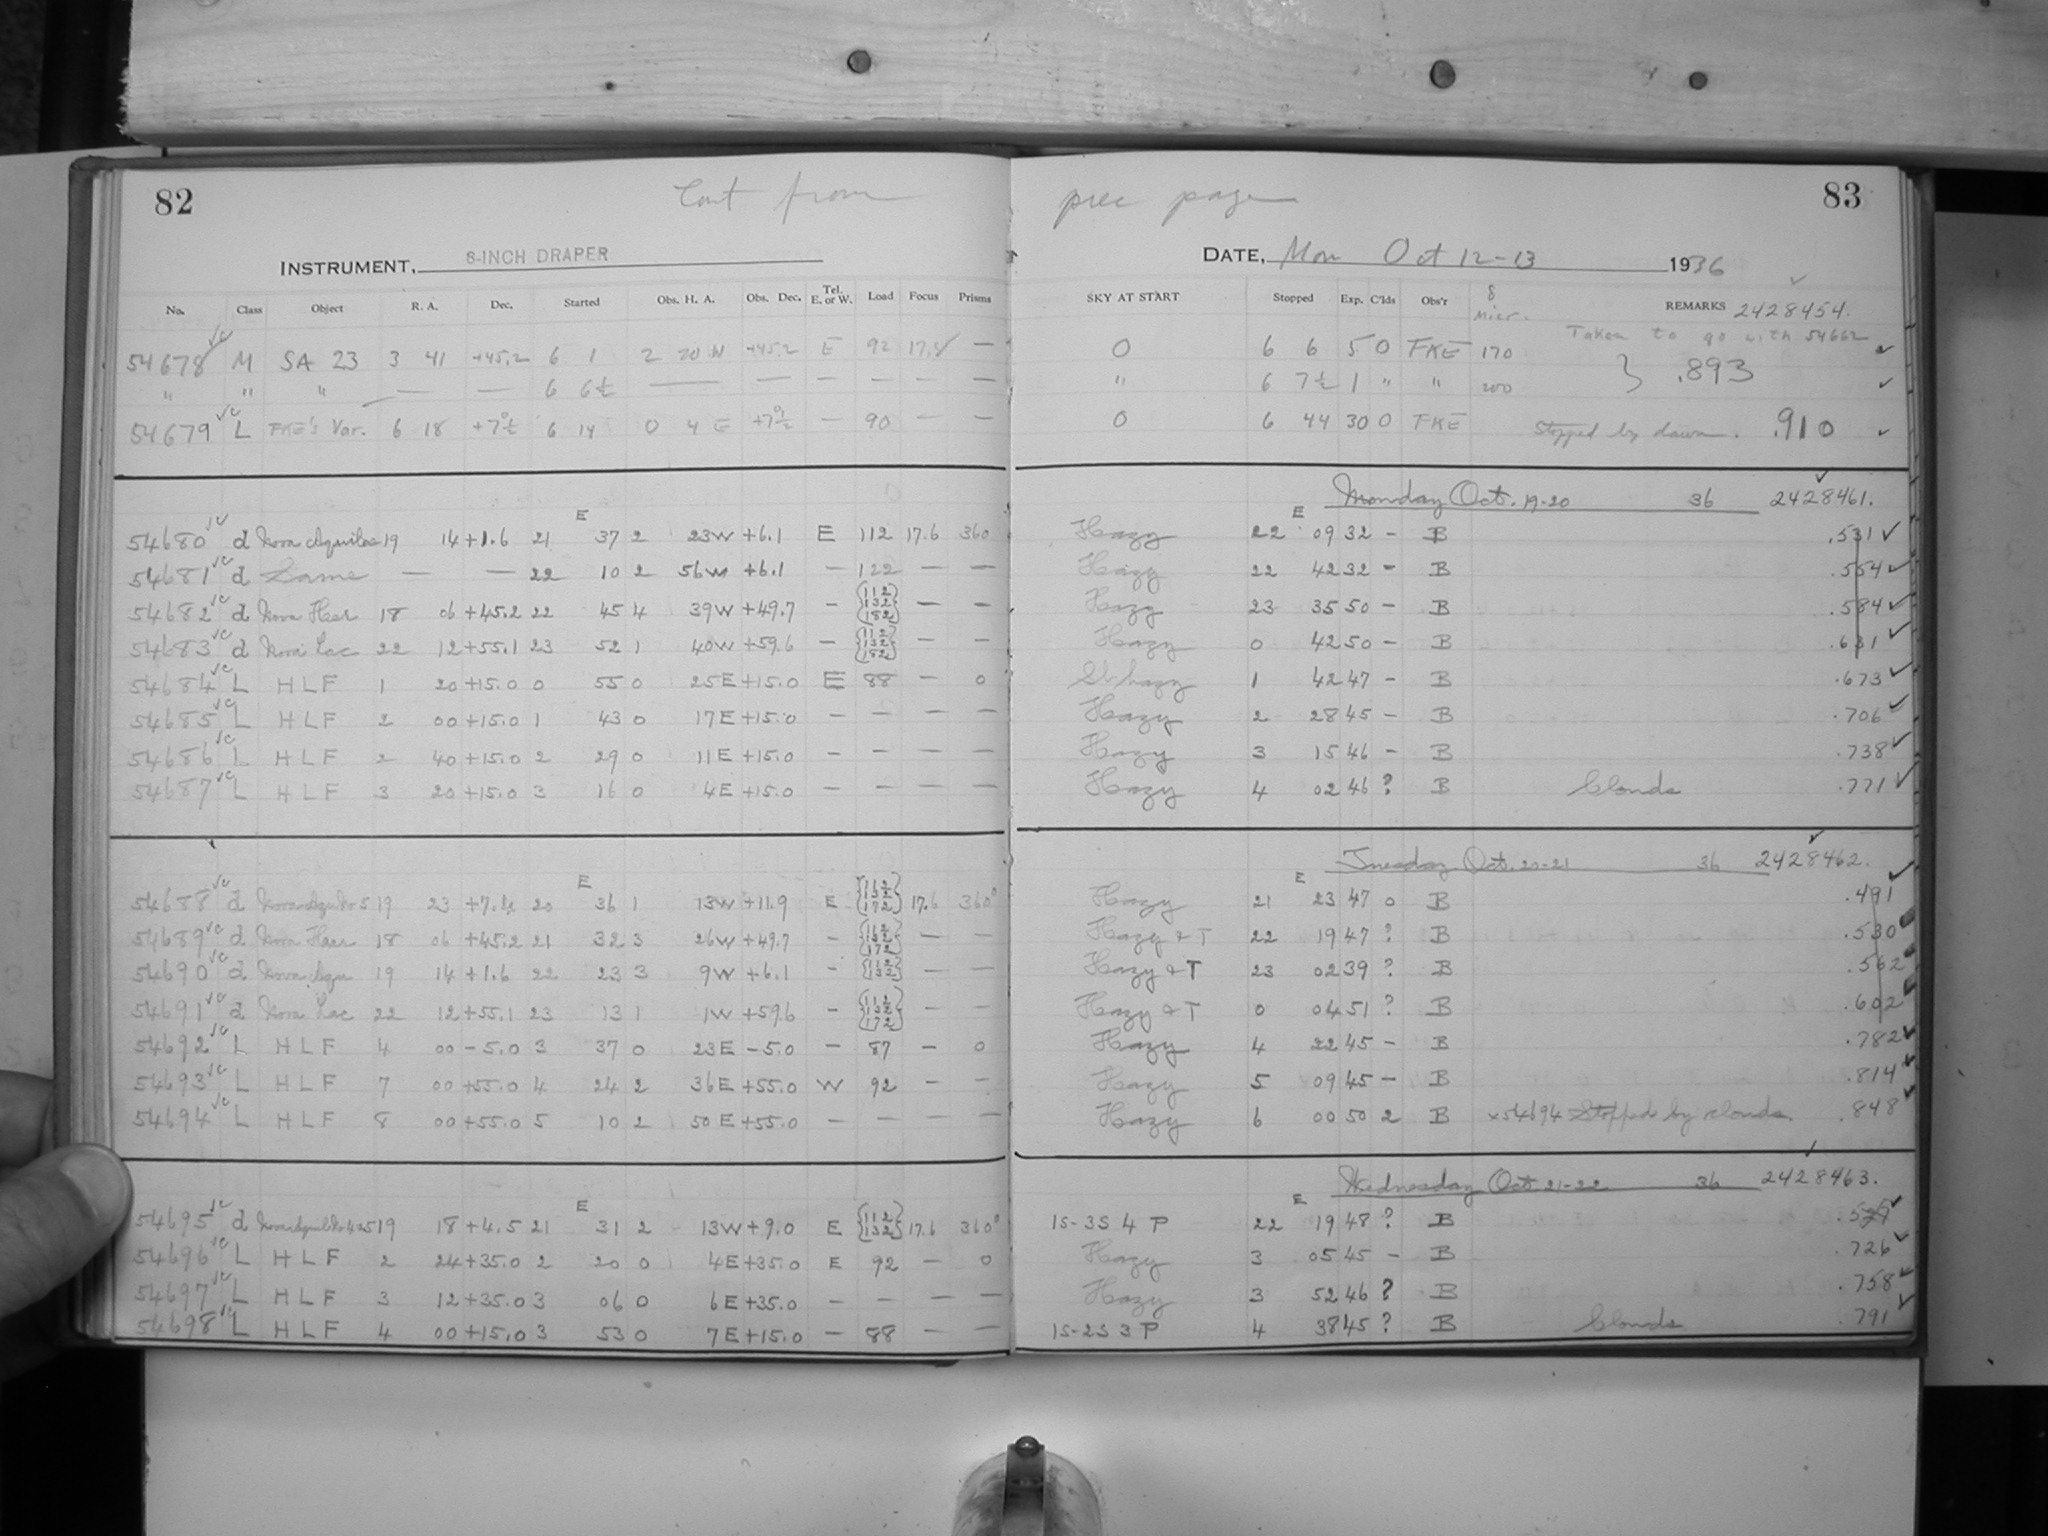 82 Cont from prec page 83
INSTRUMENT, 8-INCH DRAPER DATE, Mon Oct 12-13 1936
No. Class Object R. A. Dec. Started Obs. H. A. Obs. Dec. Tel. E. or W. Load Focus Prisms SKY AT START Stopped Exp. C'lds Obs'r 8 Micr. REMARKS 2428454.
Taken to go with 54662
54678 M SA 23 3 41 +45.2 6 1 2 20 W +45.2 E 92 17.8 — 0 6 6 5 0 FKE 170
" " " — — 6 6½ — — — — — — " 6 7½ 1 " " 200 } .893
54679 L FKE's Var. 6 18 +7½ 6 14 0 4 E +7½ — 90 — — 0 6 44 30 0 FKE Stopped by dawn. .910
Monday Oct. 19-20 36 2428461.
54680 d Nova Aquilae 19 14 +1.6 21 E 37 2 23W +6.1 E 112 17.6 360 Hazy 22 E 09 32 - B .531
54681 d Same — — 22 10 2 56W +6.1 — 122 — — Hazy 22 42 32 - B .554
54682 d Nova Her 18 06 +45.2 22 45 4 39W +49.7 — {112 132 182} — — Hazy 23 35 50 - B .584
54683 d Nova Lac 22 12 +55.1 23 52 1 40W +59.6 — {112 132 182} — — Hazy 0 42 50 - B .631
54684 L HLF 1 20 +15.0 0 55 0 25E +15.0 E 88 — 0 Sl. hazy 1 42 47 - B .673
54685 L HLF 2 00 +15.0 1 43 0 17E +15.0 — — — — Hazy 2 28 45 - B .706
54686 L HLF 2 40 +15.0 2 29 0 11E +15.0 — — — — Hazy 3 15 46 - B .738
54687 L HLF 3 20 +15.0 3 16 0 4E +15.0 — — — — Hazy 4 02 46 ? B Clouds .771
Tuesday Oct. 20-21 36 2428462.
54688 d Nova Aquil No 5 19 23 +7. 20 E 36 1 13W +11.9 E 172} 17.6 360° Hazy 21 E 23 47 0 B .491
54689 d Nova Her 18 06 +45.2 21 32 3 26W +49.7 — 172} — — Hazy & T 22 19 47 ? B .530
54690 d Nova Aqu 19 14 +1.6 22 23 3 9W +6.1 — {112 132} — — Hazy & T 23 02 39 ? B .562
54691 d Nova Lac 22 12 +55.1 23 13 1 1W +59.6 — {112 132 172} — — Hazy & T 0 04 51 ? B .602
54692 L HLF 4 00 -5.0 3 37 0 23E -5.0 — 87 — 0 Hazy 4 22 45 - B .782
54693 L HLF 7 00 +55.0 4 24 2 36E +55.0 W 92 — — Hazy 5 09 45 - B .814
54694 L HLF 8 00 +55.0 5 10 2 50E +55.0 — — — — Hazy 6 00 50 2 B x54694 Stopped by clouds. .848
Wednesday Oct. 21-22 36 2428463.
54695 d Nova Aquil No 4 & 5 19 18 +4.5 21 E 31 2 13W +9.0 E {112 132} 17.6 360° 1S-3S 4 P 22 E 19 48 ? B
54696 L HLF 2 24 +35.0 2 20 0 4E +35.0 E 92 — 0 Hazy 3 05 45 - B .726
54697 L HLF 3 12 +35.0 3 06 0 6E +35.0 — — — — Hazy 3 52 46 ? B .758
54698 L HLF 4 00 +15.0 3 53 0 7E +15.0 — 88 — — 1S-2S 3 P 4 38 45 ? B Clouds .791